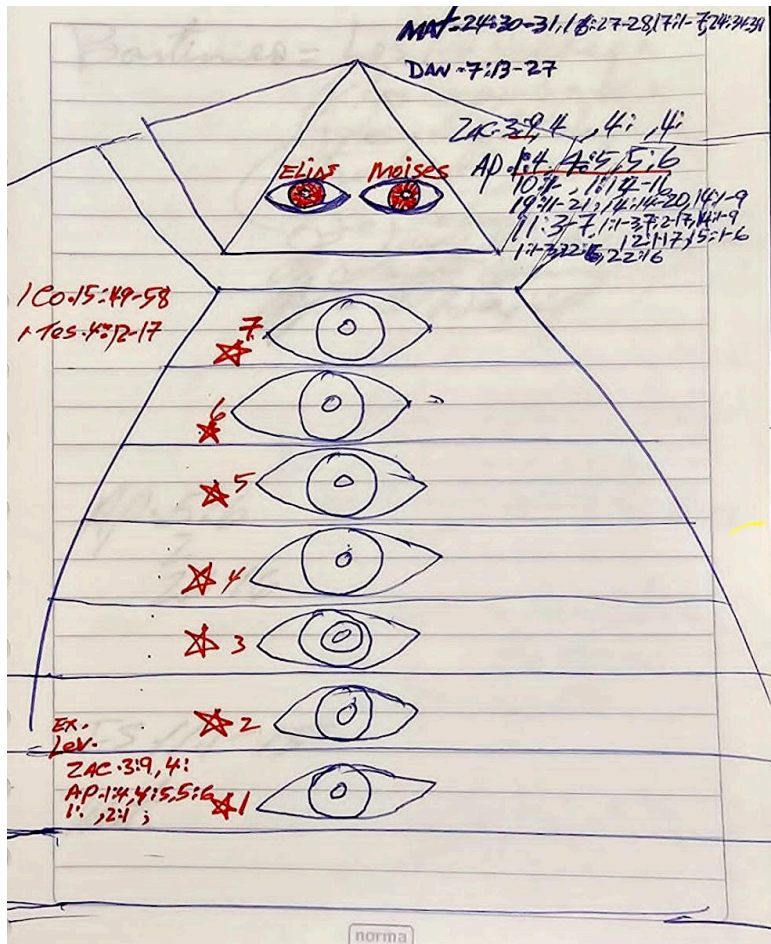 MAT-24:30-31, 16:27-28, 17:1-7, 24:34-39
DAN-7:13-27
ZAC-3:9, 4 , 4: , 4:
AP. 1:4, 4:5, 5:6
10:1- , 1:14-16
19:11-21, 14:14-20, 14:1-9
11:3-7, 1:1-3, 7:2-17, 14:1-9
12:1-17, 15:1-6
22:16
ELIAS MOISES
1 CO.15:49-58
1 Tes.4:12-17
7
6
5
4
3
2
EX.
Lev.
ZAC.3:9, 4:
AP.1:4, 4:5, 5:6
1: , 2:1 ;
1
norma